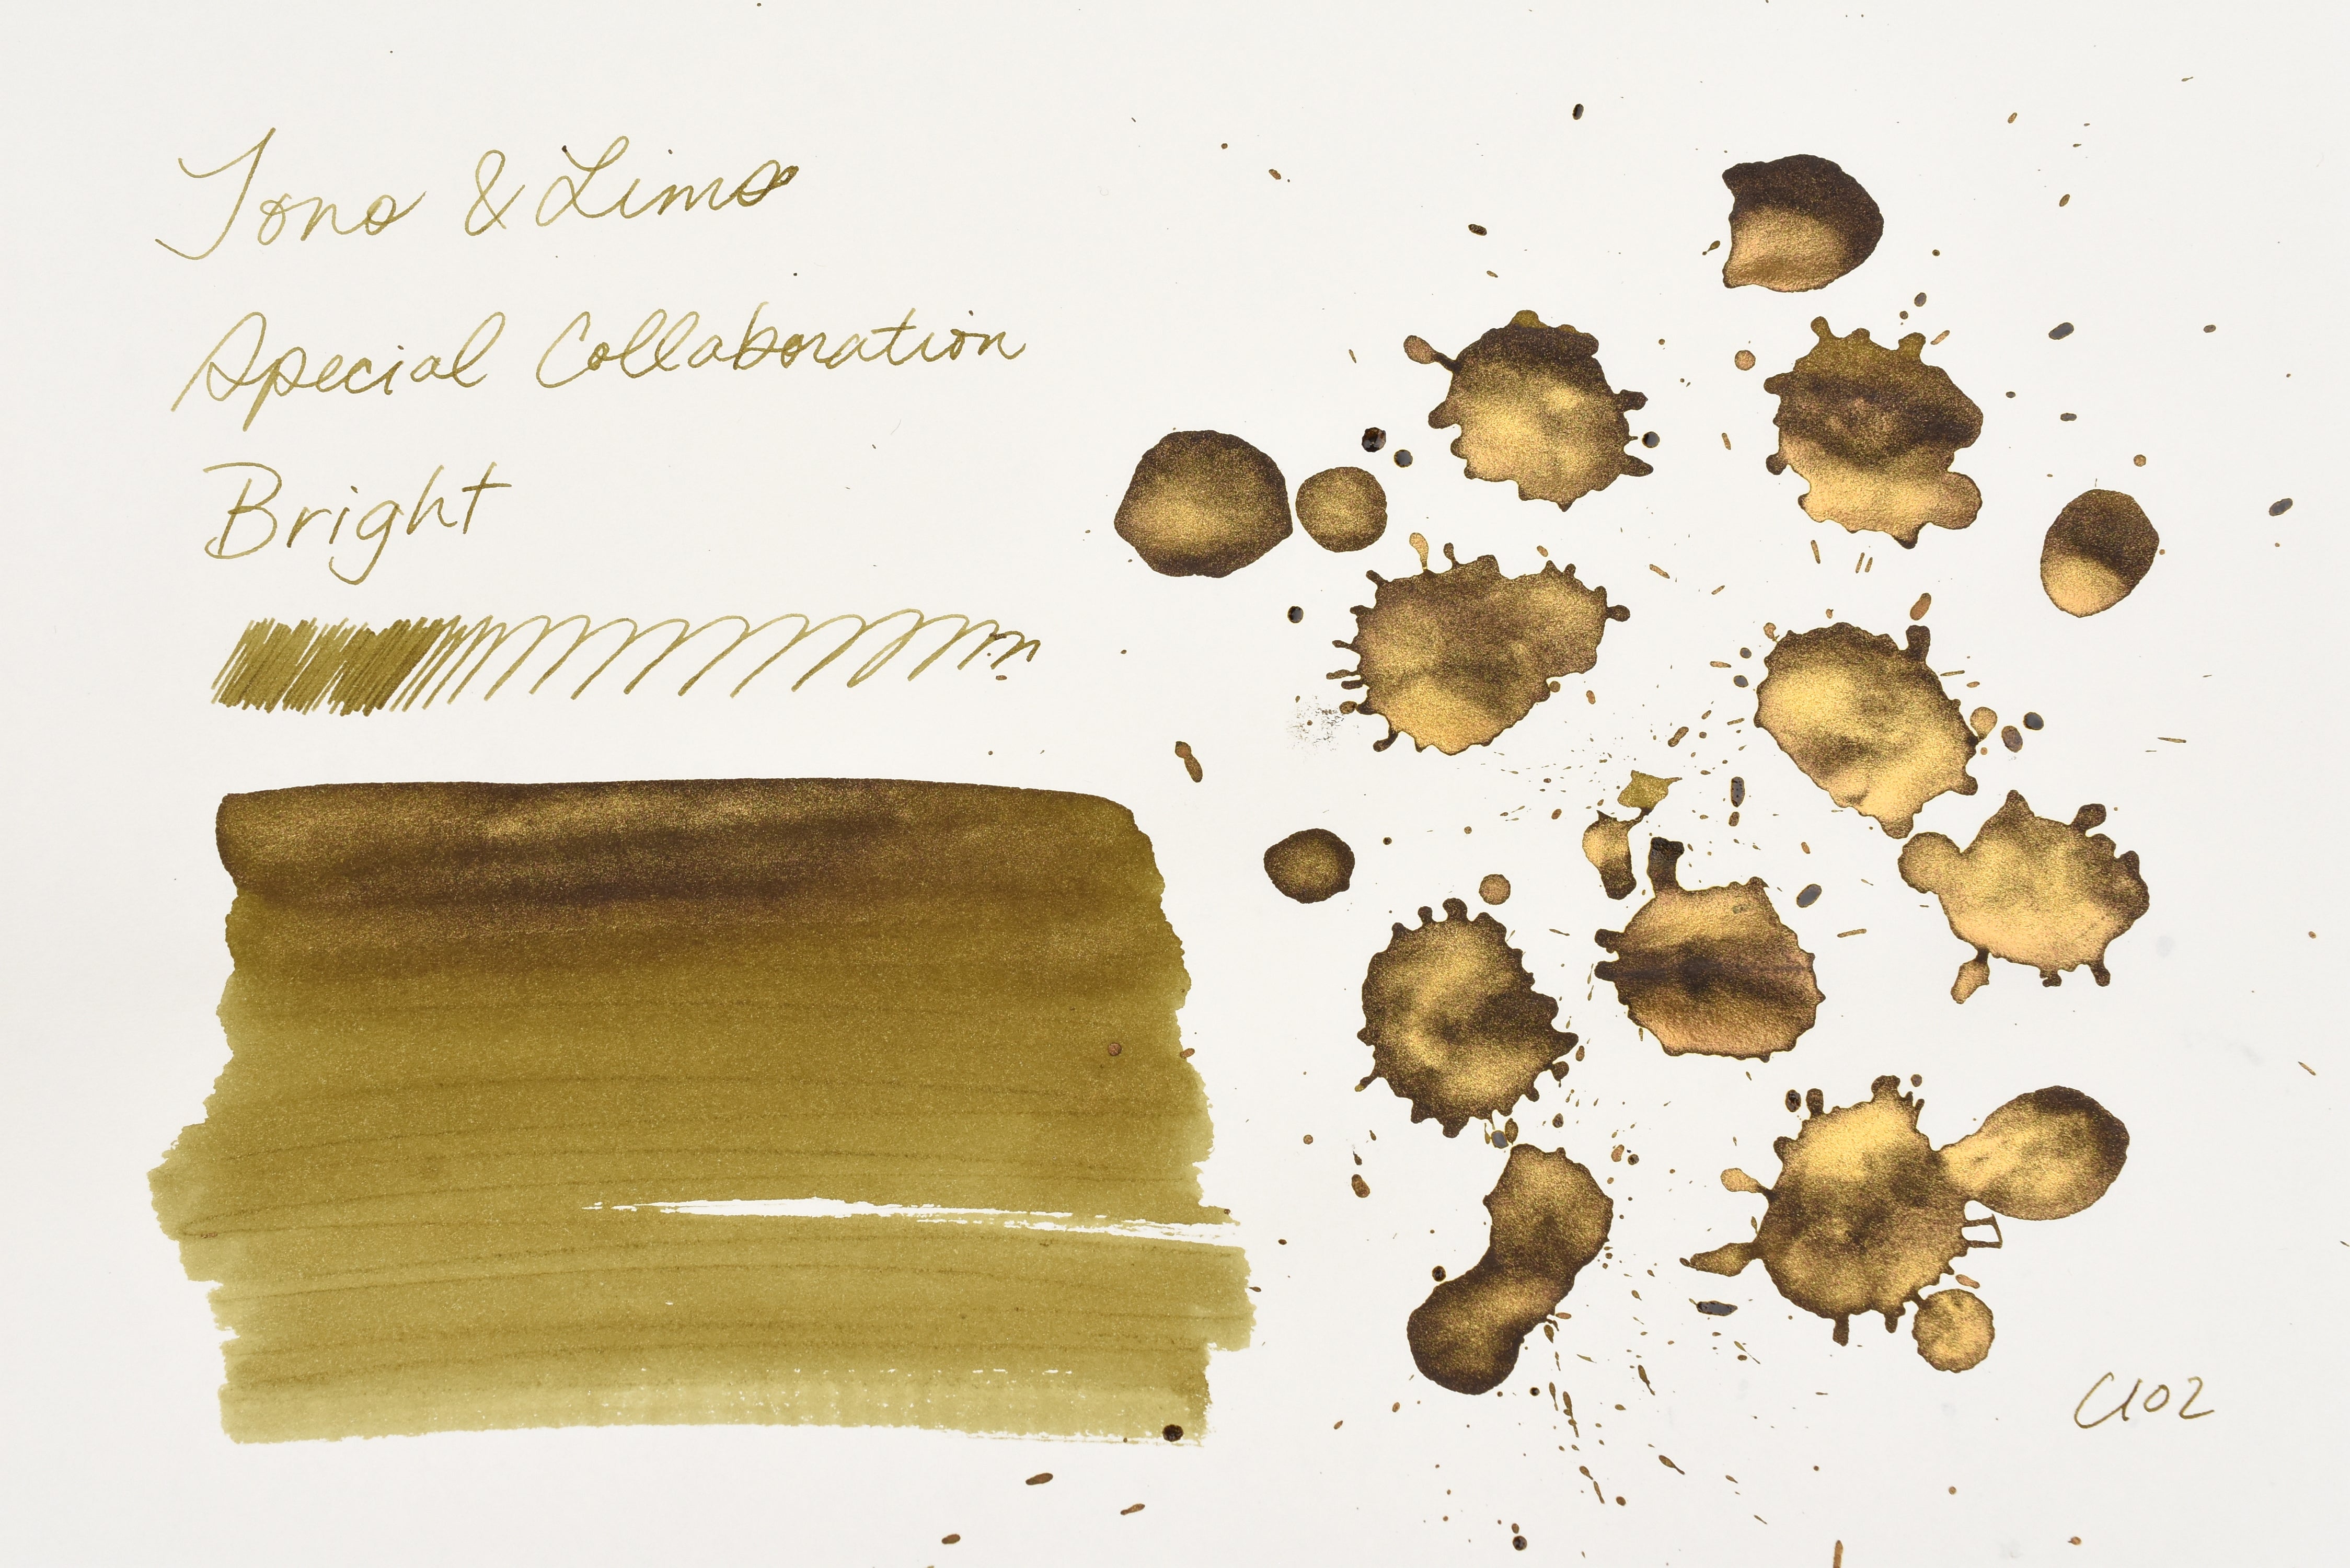 Tono & Lims
Special Collaboration
Bright
C102